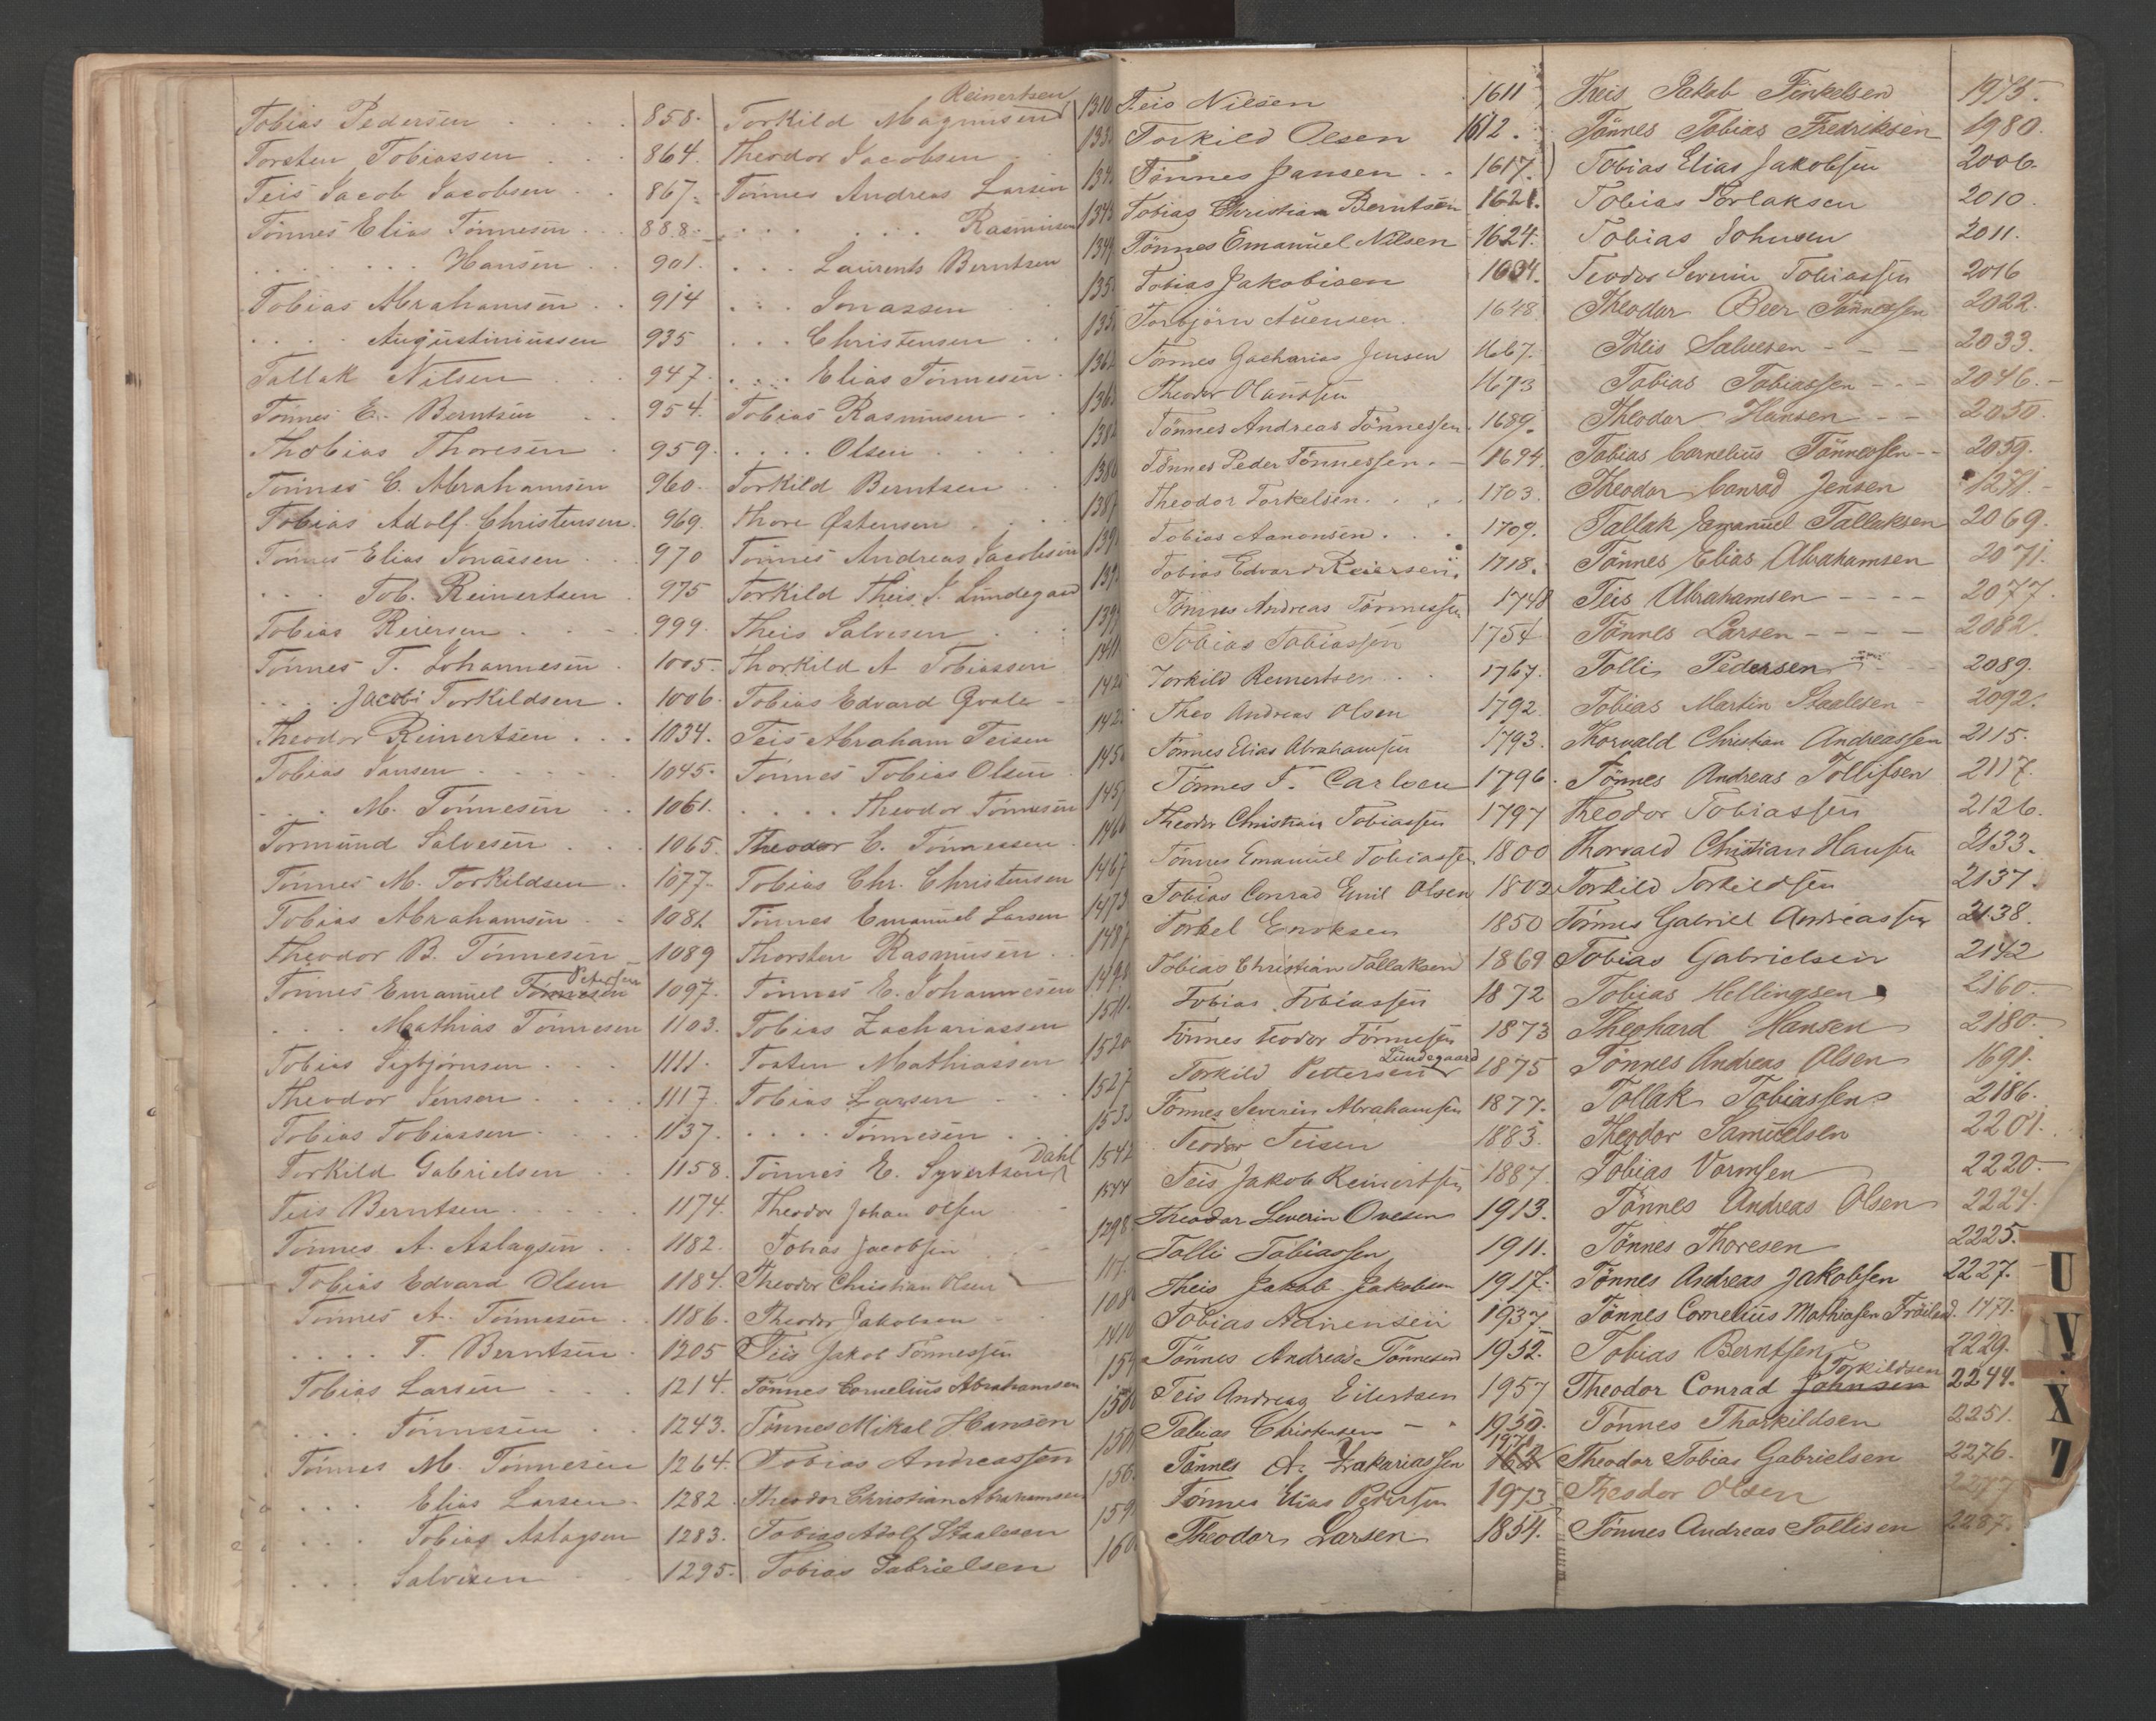 Tobias Pedersen . . . . 858.
Torsten Tobiassen . . . 864.
Teis Jacob Jacobsen . . 867.
Tönnes Elias Tönnesen . . 888.
. . . . . . . Hansen . . 901.
Tobias Abrahamsen . . 914
. . . . Augustiniussen 935
Tallak Nilsen . . . 947.
Tönnes E. Berntsen . . 954.
Thobias Thoresen . 959.
Tönnes C. Abrahamsen 960.
Tobias Adolf Christensen. 969.
Tönnes Elias Jonassen . . 970
. . . Tob. Reinertsen . 975
Tobias Reiersen . . . . 999.
Tönnes T. Johannesen . 1005.
. . . . Jacob Torkildsen . 1006.
Theodor Reinertsen . . . 1034.
Tobias Jansen . . . . . 1045.
. . . M. Tönnesen . . 1061.
Tormund Salvesen . . . 1065.
Tönnes M. Torkildsen . 1077.
Tobias Abrahamsen . . 1082
Theodor B. Tönnesen 1089
Petersen
Tönnes Emanuel Tönnesen 1097.
. . . Mathias Tönnesen 1103.
Tobias Sigbjörnsen . . . 1111.
Theodor Jensen . . . . 1117.
Tobias Tobiassen . . . . 1137.
Torkild Gabrielsen . . 1158.
Teis Berntsen . . . . . 1174.
Tönnes A. Aslagsen . . 1182.
Tobias Edvard Olsen 1184.
Tönnes A. Tönnesen . . 1186.
. . . . T. Berntsen . 1205
Tobias Larsen . . . 1214.
. . . . Tönnesen . . 1243.
Tönnes M. Tönnesen 1264.
. . . Elias Larsen . 1282.
. . . Tobias Aslagsen 1283.
. . . Salvesen . . 1295.
Reinertsen
Torkild Magnusen 1310
Theodor Jacobsen . . 133
Tönnes Andreas Larsen 134
. . . . . . . Rasmusen 1343
. . . Laurents Berntsen 134
. . . Jonassen . . 135
. . . Christensen . . 135
. . . Elias Tönnesen . 1362
Tobias Rasmusen . . 136
. . . . Olsen . . . . 138
Torkild Berntsen . . 1386
Thore Østensen . . . . 1387
Tönnes Andreas Jacobsen 139
Torkild Theis J. Lundegaard 139
Theis Salvesen . . . 139
Thorkild A Tobiassen 1411
Tobias Edvard Qvale - 142
Teis Abraham Teisen 142
Tönnes Tobias Olsen . 145
. . . . Theodor Tönnesen 145
Theodor C. Tönnessen . 1460
Tobias Chr. Christensen 1467
Tönnes Emanuel Larsen 1473
Thorsten Rasmusen . . 1487
Tönnes E. Johannesen 149
Tobias Zachariassen 1511.
Tosten Mathiassen 1520
Tobias Larsen . . . 1527
. . . . Tönnesen . . 1533
Dahl
Tönnes E. Syvertsen 1542
Theodor Johan Olsen . - 1544
Tobias Jacobsen . - 1298
Theodor Christian Olsen 117
Theodor Jakobsen - . 108
Teis Jakob Tönnessen 1410
Tönnes Cornelius Abrahamsen 15
Tönnes Mikal Hansen 1500
Tobias Andreassen 150
Theodor Christian Abrahamsen 150
Tobias Adolf Staalesen 159
Tobias Gabrielsen 160
Teis Nilsen 1611
Torkild Olsen 1612.
Tönnes Jansen . . 1617.
Tobias Christian Berntsen 1621.
Tönnes Emanuel Nilsen 1624.
Tobias Jakobisen 1634.
Torbjörn Auensen. 1648
Tönnes Zacharias Jensen 1667.
Theodor Olaussen 1673
Tönnes Andreas Tönnessen. 1689.
Tönnes Peder Tönnessen. - 1694.
Theodor Torkelsen. . . . 1703.
Tobias Aanonsen. . . 1709.
Tobias Edvard Reiersen. 1718.
Tönnes Andreas Tönnessen 1748
Tobias Tobiassen 1754
Torkild Reinertsen . . 1767.
Theo Andreas Olsen 1792.
Tönnes Elias Abrahamsen 1793.
Tönnes T. Carlsen 1796.
Theodor Christian Tobiassen 1797
Tönnes Emanuel Tobiassen 1800
Tobias Conrad Emil Olsen 1802
Torkel Enoksen 1850
Tobias Christian Tallaksen 1869
Tobias Tobiassen 1872
Tönnes Teodor Tönnessen 1873
Lundegaard
Torkild Pettersen 1875
Tönnes Severin Abrahamsen 1877.
Teodor Teisen 1883.
Teis Jakob Reinertsen 1887.
Theodor Severin Ovesen 1913.
Talli Tobiassen 1911.
Theis Jakob Jakobsen 1917.
Tobias Adriensen 1937.
Tönnes Andreas Tönnesen 1952.
Teis Andreas Eilertsen 1957
Tobias Christensen - " 1950.
1971
Tönnes A. Zakariassen
Tönnes Elias Pedersen 1973
Theodor Larsen 1854.
Theis Jakob Terkelsen 1975.
Tönnes Tobias Fredriksen 1980.
Tobias Elias Jakobsen 2006.
Tobias Torlaksen 2010.
Tobias Johnsen 2011.
Teodor Severin Tobiassen 2016
Theodor Beer Tönnessen 2022.
Theis Salvesen - - - 2033.
Tobias Tobiassen - - - 2046.-
Theodor Hansen - - 2050.
Tobias Cornelius Tönnessen - - 2059.
Theodor Conrad Jensen 1271.-
Tallak Emanuel Tallaksen 2069.
Tönnes Elias Abrahamsen 2071.
Teis Abrahamsen - - - - 2077.
Tönnes Larsen - - - - 2082.
Tolli Pedersen - - 2089.
Tobias Martin Staalesen - 2092.
Thorvald Christian Andreassen 2115.
Tönnes Andreas Tollifsen 2117.
Theodor Tobiassen 2126.
Thorvald Christian Hansen 2133.
Torkild Torkildsen 2137.
Tönnes Gabriel Andreassen 2138.
Tobias Gabrielsen 2142
Tobias Hellingsen 2160.
Theghard Hansen 2180.
Tönnes Andreas Olsen 1691.
Tollak Tobiassen 2186.
Theodor Samuelsen 2201.
Tobias Vormsen 2220.
Tönnes Andreas Olsen 2224.
Tönnes Thoresen 2225.
Tönnes Andreas Jakobsen 2227.
Tönnes Cornelius Mathiasen Fröiland. 1471.
Tobias Berntsen 2229.
Torkildsen
Theodor Conrad Johnsen 2244.
Tönnes Thorkildsen 2251.
Theodor Tobias Gabrielsen 2276.
Theodor Olsen 2277
Tönnes Andreas Tollisen 2287.
U
V
X
Z